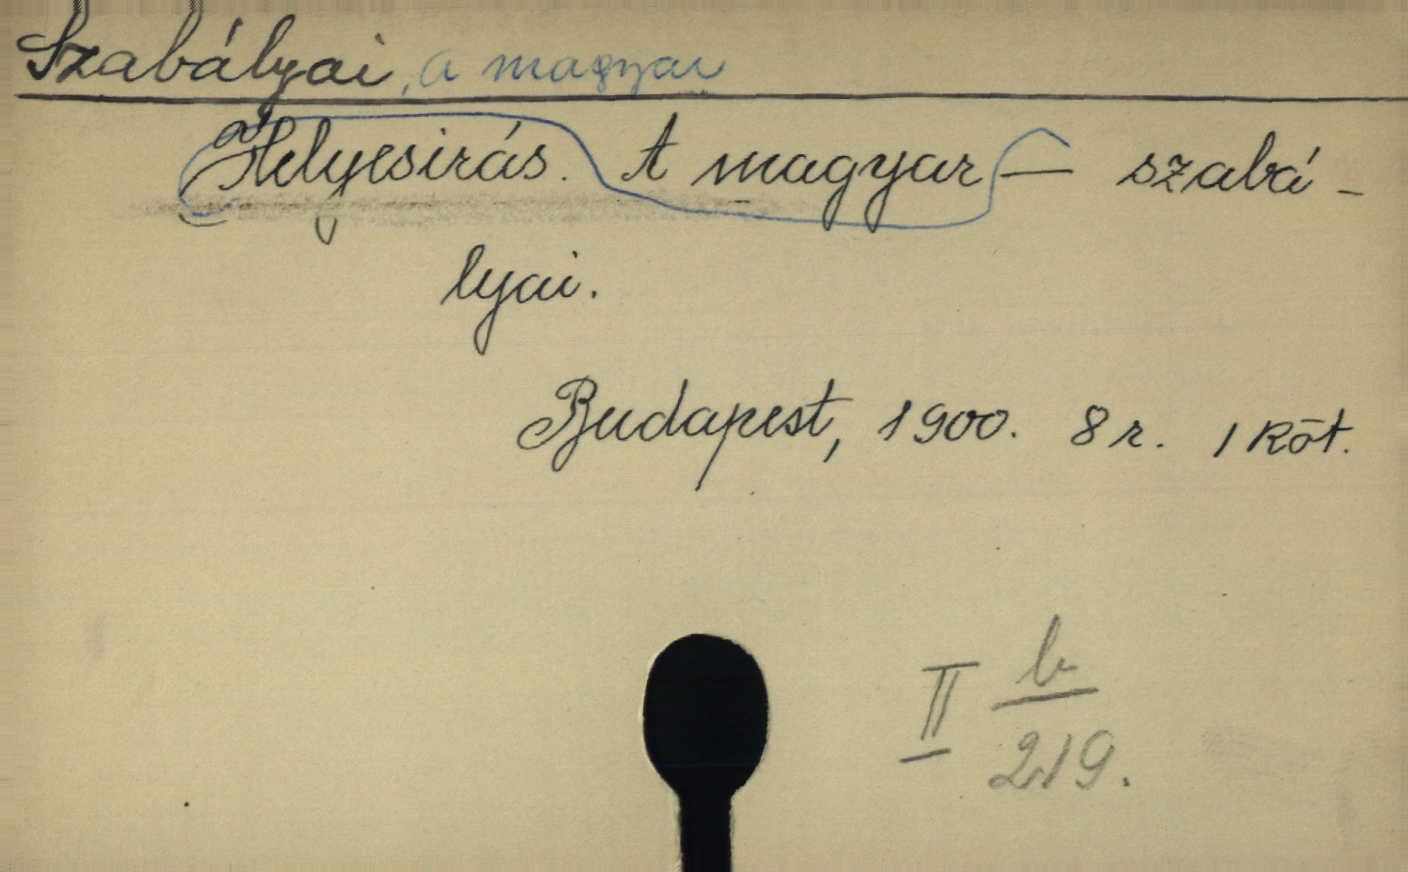 Szabályai, a magyar
Helyesirás. A magyar — szabá-
lyai.
Budapest, 1900. 8r. 1 Köt.
II b/219.